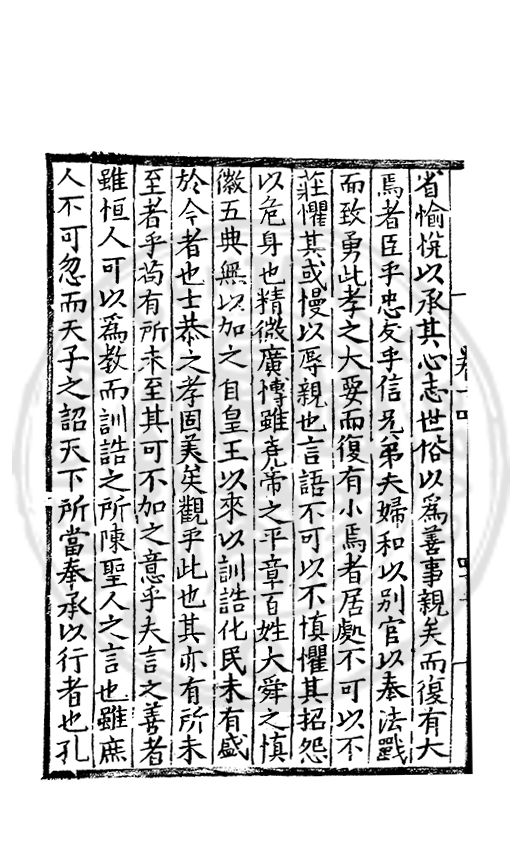 省愉悅以承其心志世俗以爲善事親矣而復有大
焉者臣乎忠友乎信兄弟夫婦和以别官以奉法戰
而致勇此孝之大要而復有小焉者居處不可以不
莊懼其或慢以辱親也言語不可以不慎懼其招怨
以危身也精微廣慱雖堯帝之平章百姓大舜之慎
徽五典無以加之自皇王以來以訓誥化民未有盛
於今者也士恭之孝固美矣觀乎此也其亦有所未
至者乎苟有所未至其可不加之意乎夫言之善者
雖恒人可以爲教而訓誥之所陳聖人之言也雖庶
人不可忽而天子之詔天下所當奉承以行者也孔